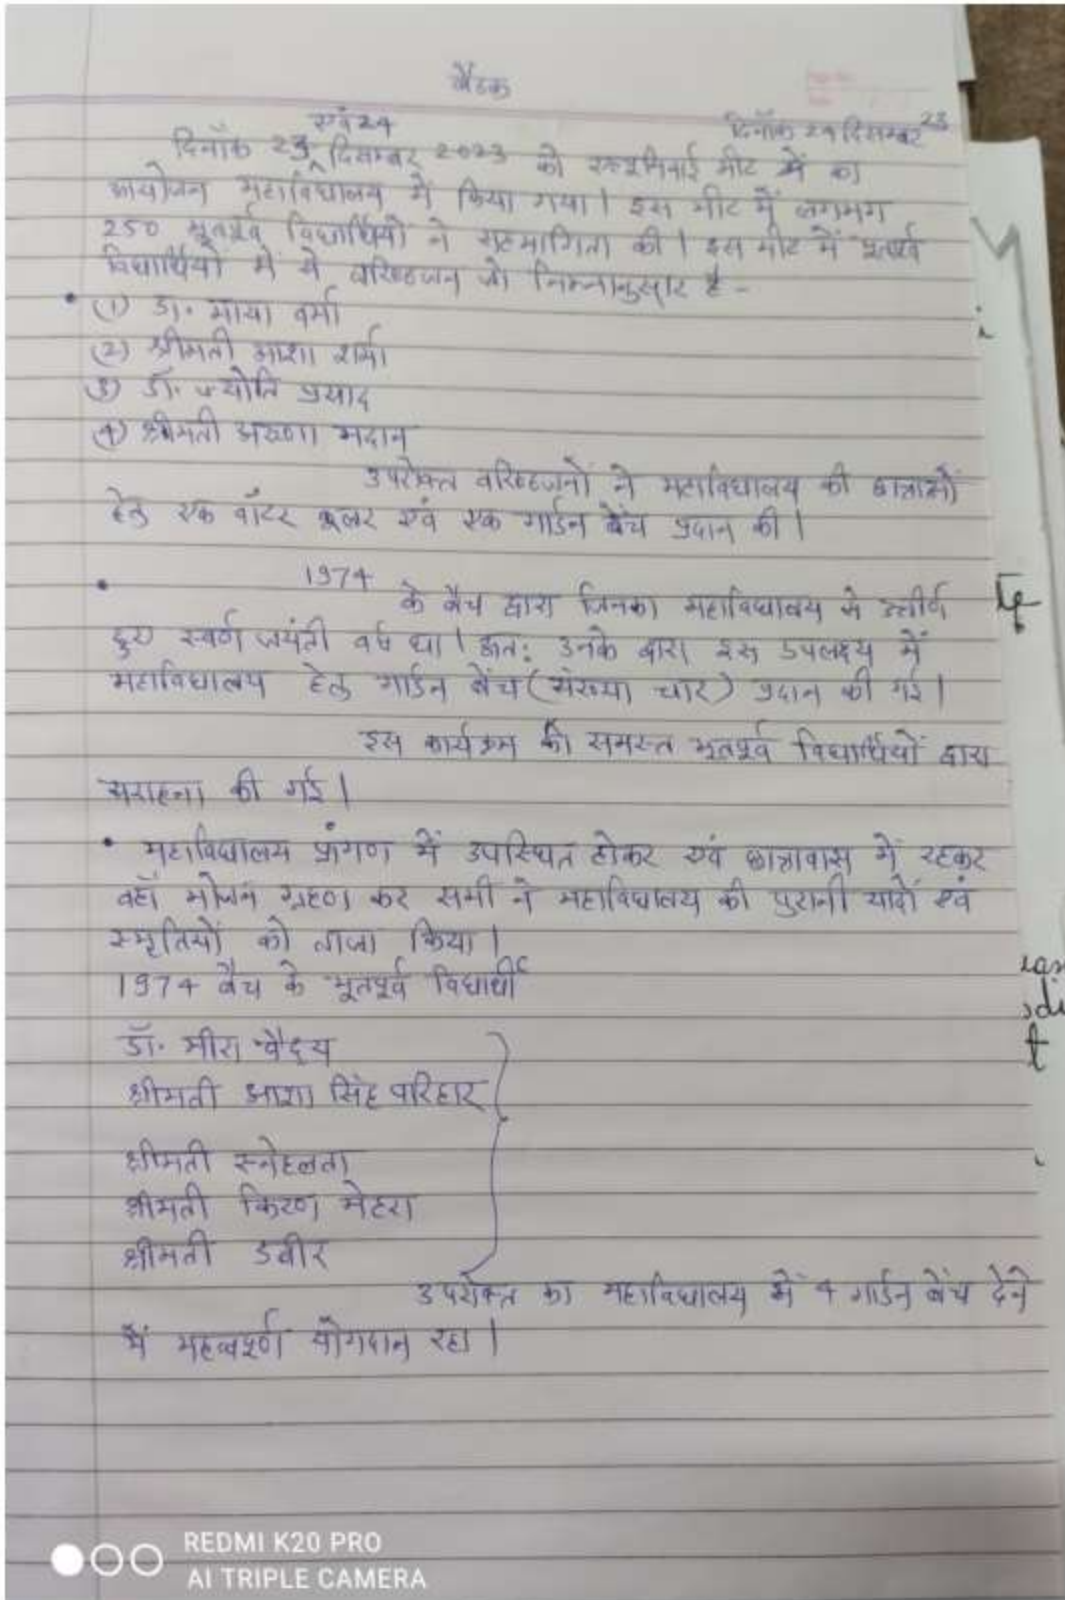 बैठक
दिनाँक 24 दिसम्बर 23
एवं 24
दिनाँक 23 दिसम्बर 2023 को एल्यूमिनाई मीट में का
आयोजन महाविद्यालय में किया गया। इस मीट में लगभग
250 भूतपूर्व विद्यार्थियों ने सहभागिता की। इस मीट में भूतपूर्व
विद्यार्थियों में से वरिष्ठजन जो निम्नानुसार है -
• (1) डा. माया वर्मा
(2) श्रीमती आशा शर्मा
(3) डॉ. ज्योति प्रसाद
(4) श्रीमती अरुणा मदान
उपरोक्त वरिष्ठजनों ने महाविद्यालय की छात्राओं
हेतु एक वॉटर कूलर एवं एक गार्डन बेंच प्रदान की।
• 1974 के बैच द्वारा जिनका महाविद्यालय से उत्तीर्ण
हुए स्वर्ण जयंती वर्ष था। अत: उनके द्वारा इस उपलक्ष्य में
महाविद्यालय हेतु गार्डन बेंच (संख्या चार) प्रदान की गई।
इस कार्यक्रम की समस्त भूतपूर्व विद्यार्थियों द्वारा
सराहना की गई।
• महाविद्यालय प्रांगण में उपस्थित होकर एवं छात्रावास में रहकर
वहाँ भोजन ग्रहण कर सभी ने महाविद्यालय की पुरानी यादों एवं
स्मृतियों को ताजा किया।
1974 बैच के भूतपूर्व विद्यार्थी
डॉ. मीरा वैद्य
श्रीमती आशा सिंह परिहार
श्रीमती स्नेहलता
श्रीमती किरण मेहरा
श्रीमती डबीर
उपरोक्त का महाविद्यालय में 4 गार्डन बेंच देने
में महत्वपूर्ण योगदान रहा।
REDMI K20 PRO
AI TRIPLE CAMERA